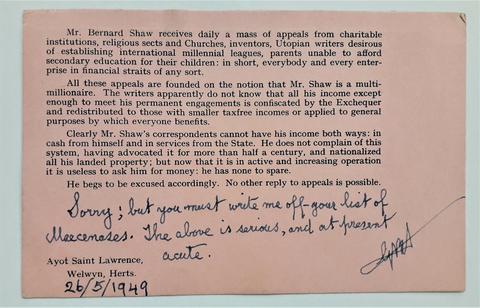 Mr. Bernard Shaw receives daily a mass of appeals from charitable
institutions, religious sects and Churches, inventors, Utopian writers desirous
of establishing international millennial leagues, parents unable to afford
secondary education for their children: in short, everybody and every enter-
prise in financial straits of any sort.
All these appeals are founded on the notion that Mr. Shaw is a multi-
millionaire. The writers apparently do not know that all his income except
enough to meet his permanent engagements is confiscated by the Exchequer
and redistributed to those with smaller taxfree incomes or applied to general
purposes by which everyone benefits.
Clearly Mr. Shaw's correspondents cannot have his income both ways: in
cash from himself and in services from the State. He does not complain of this
system, having advocated it for more than half a century, and nationalized
all his landed property; but now that it is in active and increasing operation
it is useless to ask him for money: he has none to spare.
He begs to be excused accordingly. No other reply to appeals is possible.
Sorry; but you must write me off your list of
Maecenases. The above is serious, and at present
acute.
Ayot Saint Lawrence,
Welwyn, Herts.
26/5/1949